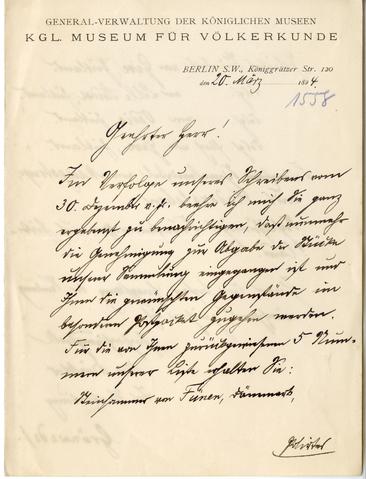 GENERAL-VERWALTUNG DER KÖNIGLICHEN MUSEEN
KGL. MUSEUM FÜR VÖLKERKUNDE
BERLIN S.W., Königgrätzer Str. 120
den 20. März 1894
1558
Geehrter Herr!
Im Verfolge unseres Schreibens vom
30. Dezember v. J. beehre ich mich Sie ganz
ergebenst zu benachrichtigen, dass nunmehr
die Genehmigung zur Abgabe der Stücke
unserer Sammlung eingegangen ist und
Ihnen die gewünschten Gegenstände im
besonderen Postpacket zugehn werden.
Für die von Ihnen zurückgewiesenen 5 Num-
mern unserer Liste erhalten Sie:
Steinhammer von Fünen, Dänemark,